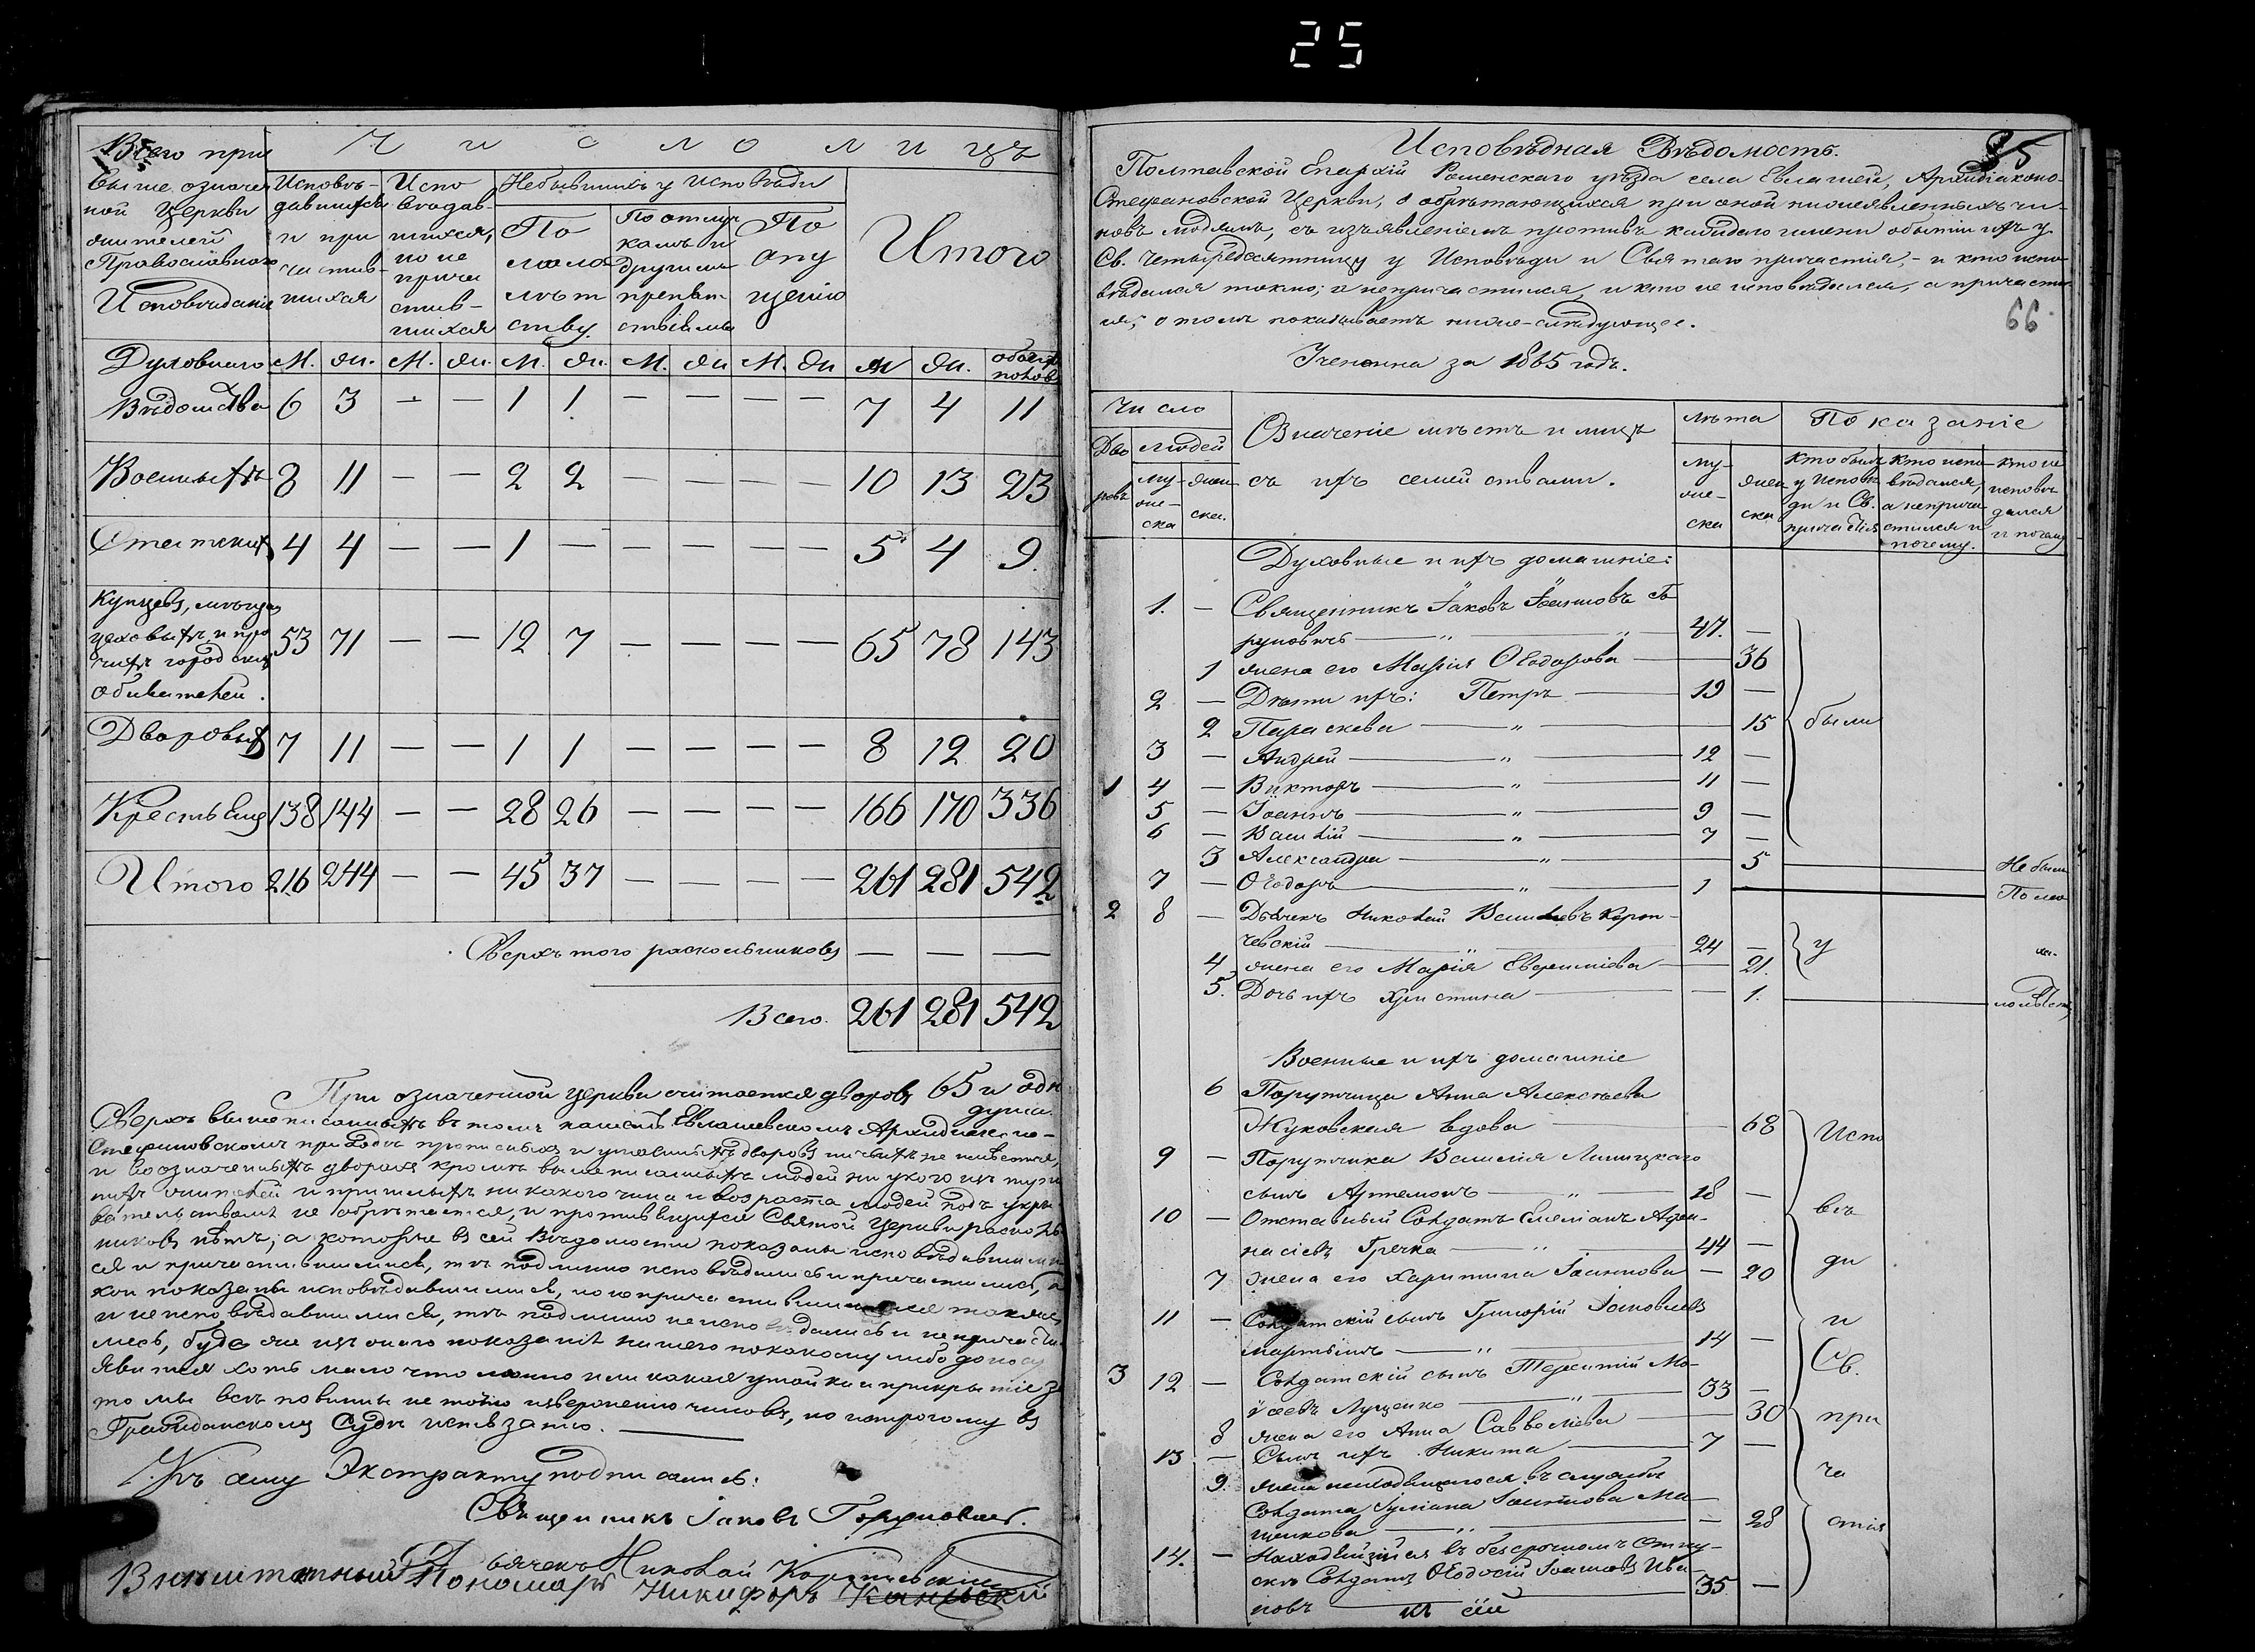 25
Всего при
Число лицъ
выше означен
ной Церкви
жителей
Православнаго
Исповѣданія
Исповѣ-
давшихся
и при
частив-
шихся
Испо
вѣдав-
шихся,
но не
прича
стив-
шихся
Небывшихъ у исповѣди
По
мало
лѣт
ству.
По отлуч
камъ и
другимъ
препят
ствіямъ
По
опу
щенію
Итого
Духовнаго М. жи. М. жи. М. жи. М. жи М. жи М жи. обоего половъ
Вѣдомства 6 3 — — 1 1 — — — — 7 4 11
Военныхъ 8 11 — — 2 2 — — — — 10 13 23
Статскихъ 4 4 — — 1 — — — — — 5 4 9.
Купцевъ, мѣщан
цеховыхъ и про
чихъ городских
обывателей.
53 71 — — 12 7 — — — — 65 78 143
Дворовыхъ 7 11 — — 1 1 — — — — 8 12 20
Крестьянъ 138 144 — — 28 26 — — — — 166 170 336
Итого 216 244 — — 45 37 — — — — 261 281 542
Сверхъ того раскольниковъ — — —
Всего. 261 281 542
При означенной церкви считается дворовъ 65 и одн
душа.
Сверхъ вышеписанныхъ въ томъ нашемъ Евлашевскомъ Архидіаконо-
Стефановскомъ приходѣ прописныхъ и утаенныхъ дворовъ ничьихъ не имѣется,
и во означенныхъ дворахъ кромѣ вышеписанныхъ людей ни укого изъ ту
нихъ жителей и пришлыхъ никакого чина и возраста людей подъ укры
вательствомъ не обрѣтается, и противящихся Святой Церкви расколь
никовъ нѣтъ; а которые въ сей Вѣдомости показаны исповѣдавшими
ся и причастившимися, тѣ подлинно исповѣдались и причастились, а
кои показаны исповѣдавшимися, но не причастившимися также
и не исповѣдавшимися, тѣ подлинно не исповѣдались и не причасти-
лись, буде же изъ онаго показанія нашего по какому либо доносу
явится хоть мало что ложно или какая утайка и прикрытіе за
то мы всѣ повинны не токмо изверженію чиновъ, но и строгому въ
Гражданскомъ Судѣ истязанію.
Къ сему Экстракту подписались:
Священникъ Іаковъ Горуновичъ.
Дьячекъ Николай
Внештатный Пономарь Никифоръ
85
Исповѣдная Вѣдомость.
Полтавской Епархіи Роменскаго уѣзда села Евлашей, Архидіаконо-
Стефановской Церкви, о обрѣтающихся при оной нижеявленныхъ чи-
новъ людямъ, съ изъявленіемъ противъ каждаго имени бытіи ихъ у
Св. Четыредесятницу у Исповѣди и Святаго причастія,- и кто испо-
вѣдался токмо; и непричастился, и кто не исповѣдался, а причасти
ся, о томъ показываетъ ниже-слѣдующее.
66
Учененна за 1865 годъ.
Число
Дво
ровъ
Людей
му-
же-
ска
жен-
ска.
Означеніе мѣстъ и лицъ
съ ихъ семействами.
лѣта
му-
же-
ска
жен
ска
Показаніе
кто былъ
у Исповѣ
ди и Св.
причастія
кто испо
вѣдался,
а неприча
стился и
почему.
кто не
исповѣ
дался
и почему
Духовные и ихъ домашніе:
1. — Священникъ Іаковъ Іоанновъ Го
руновичъ — 47. —
1 жена его Марія Ѳеодорова — 36
2 — Дѣти ихъ: Петръ — 19 —
2 Параскева — 15 были
3 — Андрей — 12 —
1 4 — Викторъ — 11 —
5 — Іоаннъ — 9 —
6 — Василій — 7 —
3 Александра — 5 Не были
7 — Ѳеодоръ — 1 — По мо
2 8 — Дьячекъ Николай Васильевъ Корот-
чевскій — 24 — у
4 жена его Марія Евфиміева — 21.
5. Дочь ихъ Христина — 1. лолѣтст
Военные и ихъ домашніе
6 Поручица Анна Алексѣева
Жуковская вдова — 68 Испо
9 — Поручика Василія Линицкаго
сынъ Артемонъ — 18 —
10 — Отставный Солдатъ Емеліанъ Афа-
насіевъ Гречка — 44 — вѣ
7 жена его Харитина Іоаннова — 20 ди
11 — Солдатскій сынъ Григорій Іаковлевъ
мартынъ — 14 — и
3 12 — Солдатскій сынъ Терентій Мо-
ѵсеевъ Луценко — 33 — Св.
8 жена его Анна Савельева — 30 при
13 — Сынъ ихъ Никита — 7 —
9. жена находящагося въ службѣ
Солдата Іуліана Іоаннова Ма
шенкова — 28 ча
14. — Находящійся въ безсрочномъ отпу-
скѣ Солдатъ Ѳеодосій Іоанновъ Ива
новъ — 35 — стія